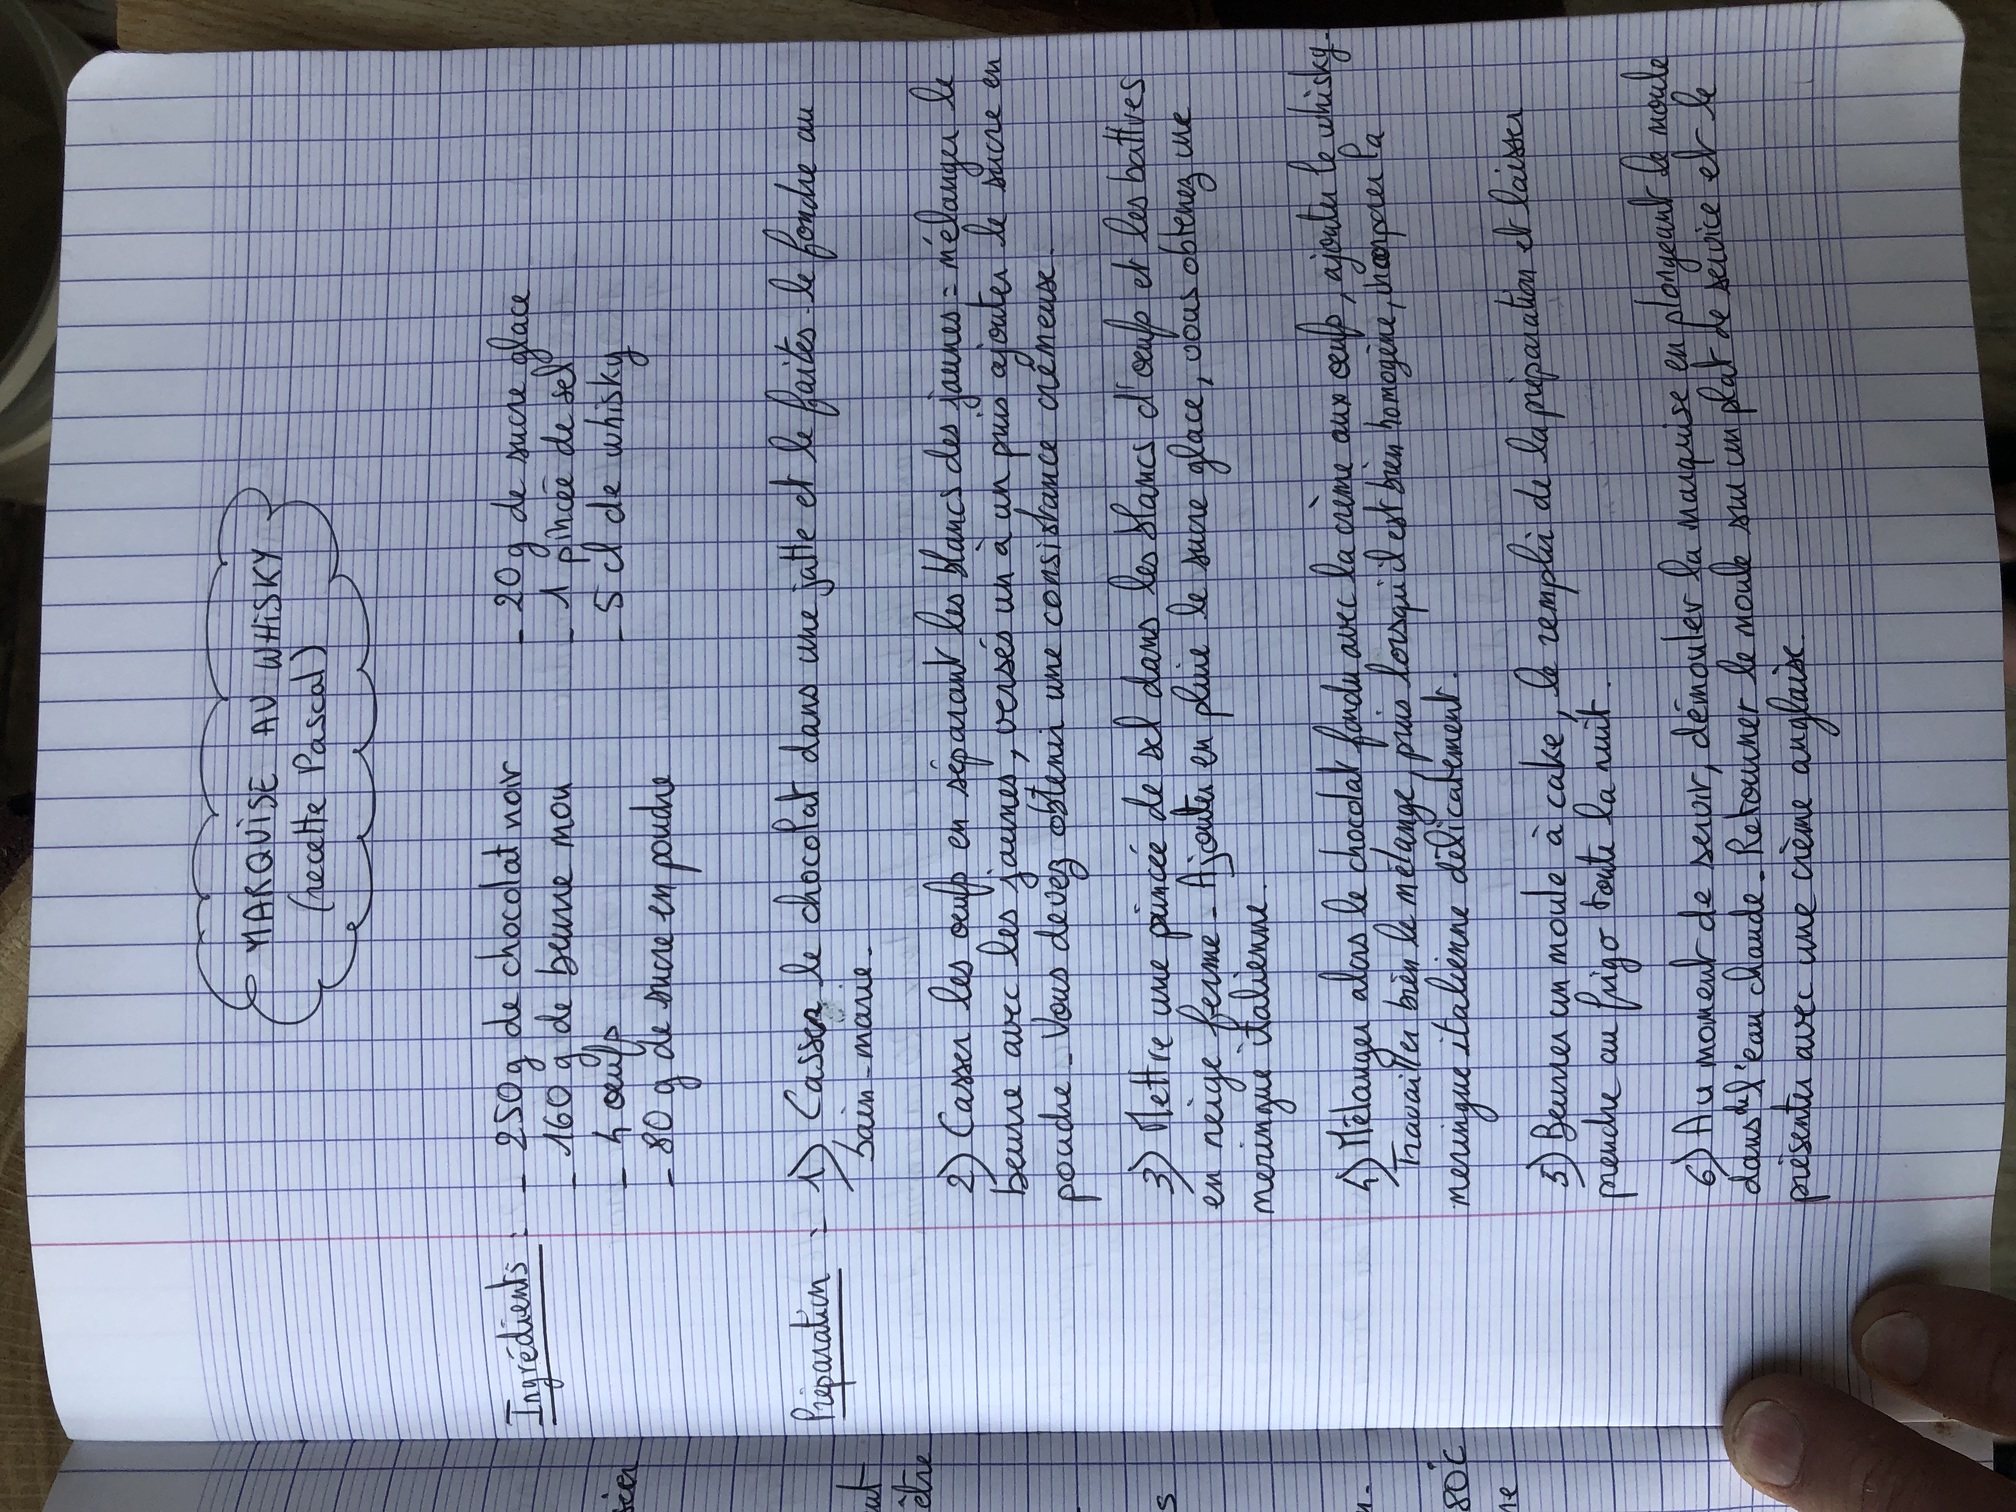 MARQUISE AU WHISKY
(recette Pascal)
Ingrédients : - 250g de chocolat noir - 20g de sucre glace
- 160 g de beurre mou - 1 pincée de sel
- 4 oeufs - 5 cl de whisky
- 80 g de sucre en poudre
Préparation : 1) Casser le chocolat dans une jatte et le faites-le fondre au
bain-marie.
2) Casser les oeufs en séparant les blancs des jaunes = mélanger le
beurre avec les jaunes, versés un à un puis ajouter le sucre en
poudre - Vous devez obtenir une consistance crémeuse.
3) Mettre une pincée de sel dans les blancs d'oeufs et les battres
en neige ferme - Ajouter en pluie le sucre glace, vous obtenez une
meringue italienne.
4) Mélanger alors le chocolat fondu avec la crème aux oeufs, ajouter le whisky.
Travailler bien le mélange, puis lorsqu'il est bien homogène, incorporer la
meringue italienne délicatement.
5) Beurrer un moule à cake, le remplir de la préparation et laisser
prendre au frigo toute la nuit.
6) Au moment de servir, démouler la marquise en plongeant le moule
dans de l'eau chaude - Retourner le moule sur un plat de service et le
présenter avec une crème anglaise.
être
80°C